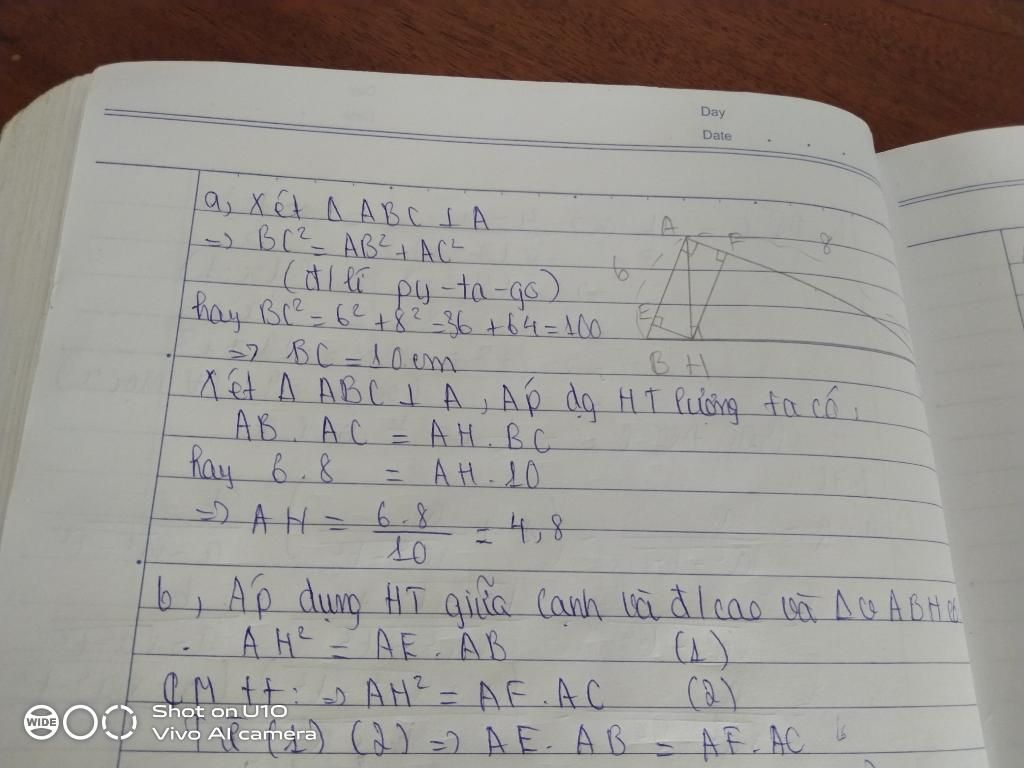 Day
Date
a, Xét Δ ABC ⊥ A
=> BC² = AB² + AC²
(đ/lí py-ta-go)
hay BC² = 6² + 8² = 36 + 64 = 100
=> BC = 10cm
A F 8
6
E
B H
Xét Δ ABC ⊥ A, Áp dg HT lượng ta có,
AB . AC = AH . BC
hay 6 . 8 = AH . 10
=> AH = 6.8 / 10 = 4,8
b, Áp dụng HT giữa cạnh và đ/cao và Δ ABH
AH² = AE . AB (1)
CM tt: => AH² = AF . AC (2)
Từ (1) (2) => AE . AB = AF . AC
WIDE
Shot on U10
Vivo AI camera